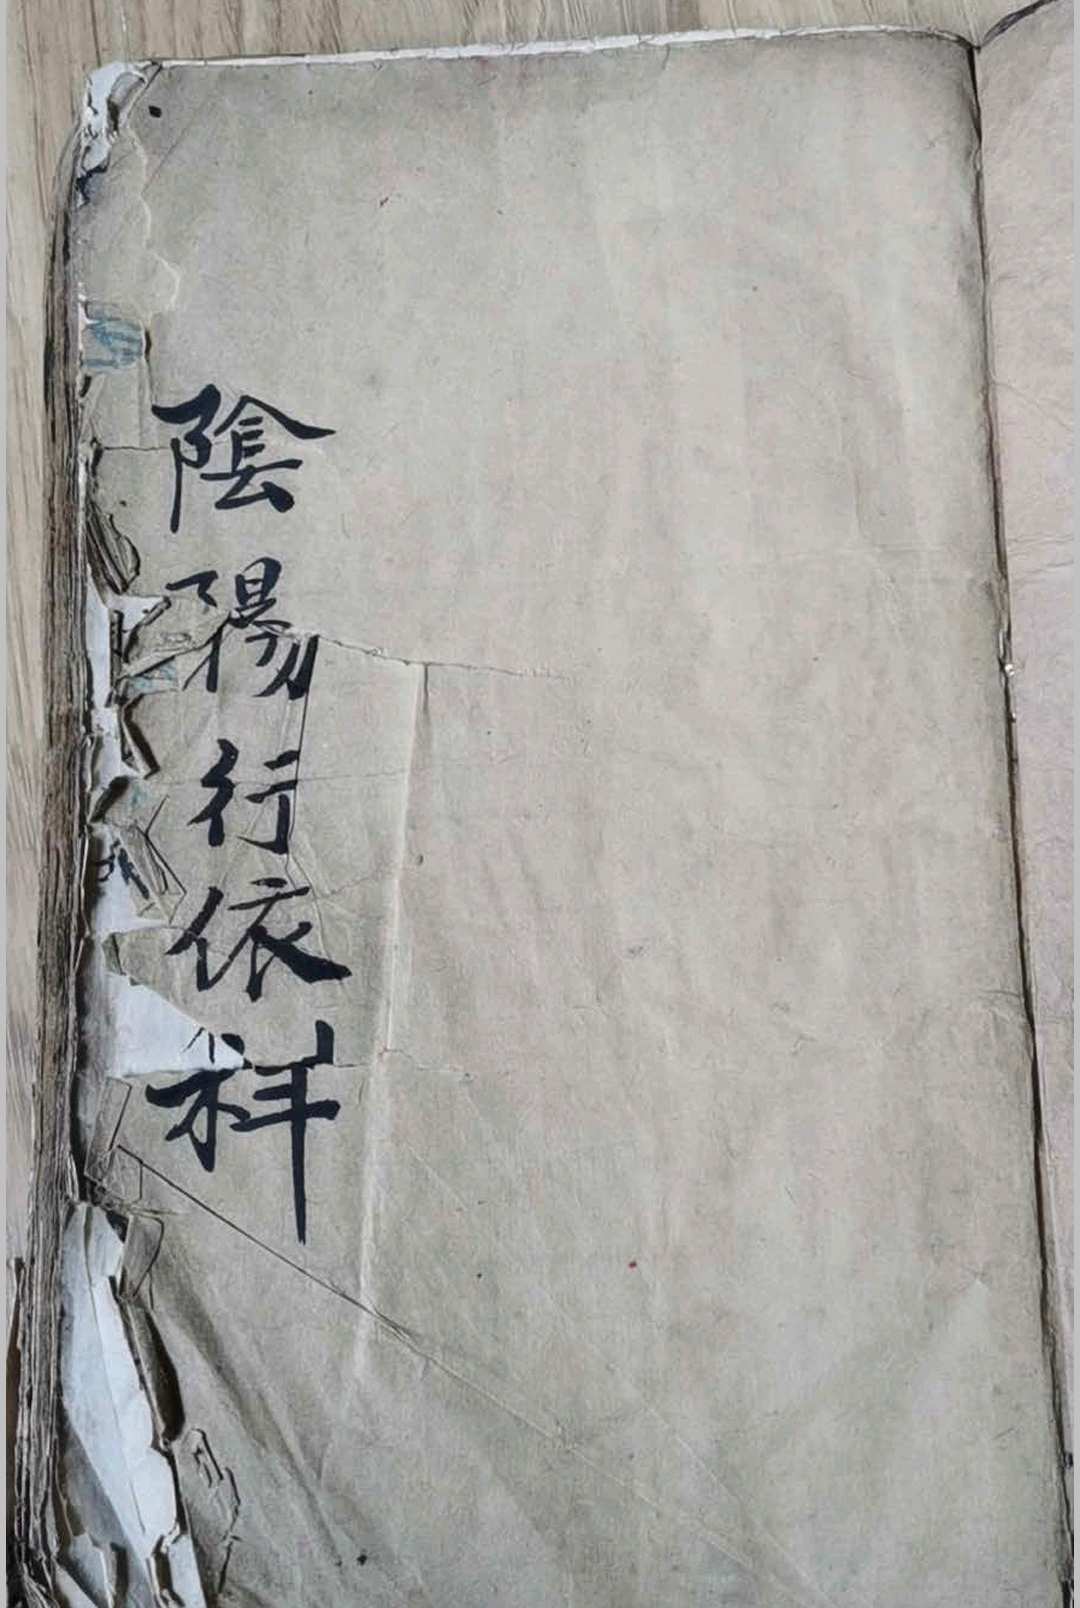 陰陽行依祥